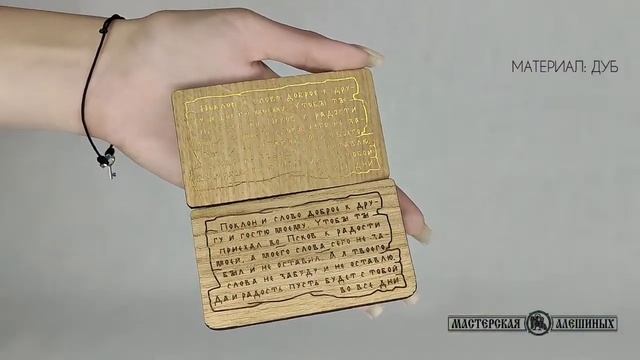 МАТЕРИАЛ: ДУБ
Поклон и слово доброе к дру-
гу и гостю моему. Чтобы ты
приехал во Псков к радости
моей, а моего слова сего не за-
был и не оставил. А я твоего
слова не забуду и не оставлю.
Да и радость пусть будет с тобой
во все дни
слово доброе к дру-
Чтобы ты
к радости
МАСТЕРСКАЯ АЛЕШИНЫХ